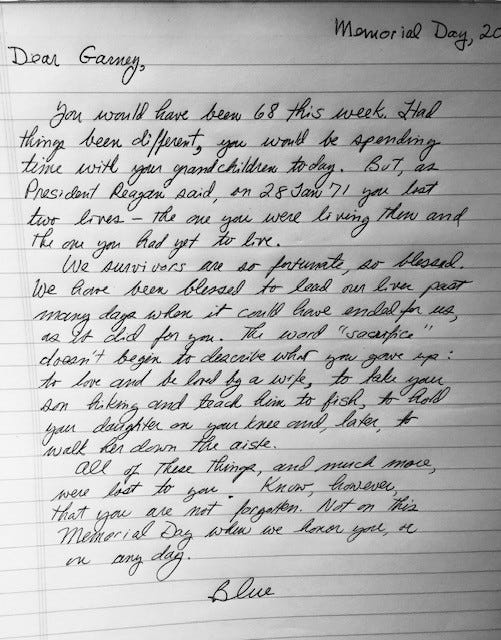 Memorial Day, 20
Dear Garney,
You would have been 68 this week. Had
things been different, you would be spending
time with your grandchildren today. But, as
President Reagan said, on 28 Jan 71 you lost
two lives – the one you were living then and
the one you had yet to live.
We survivors are so fortunate, so blessed.
We have been blessed to lead our lives past
many days when it could have ended for us,
as it did for you. The word "sacrifice"
doesn't begin to describe what you gave up:
to love and be loved by a wife, to take your
son hiking and teach him to fish, to hold
your daughter on your knee and, later, to
walk her down the aisle.
All of these things, and much more,
were lost to you. Know, however,
that you are not forgotten. Not on this
Memorial Day when we honor you, or
on any day.
Blue